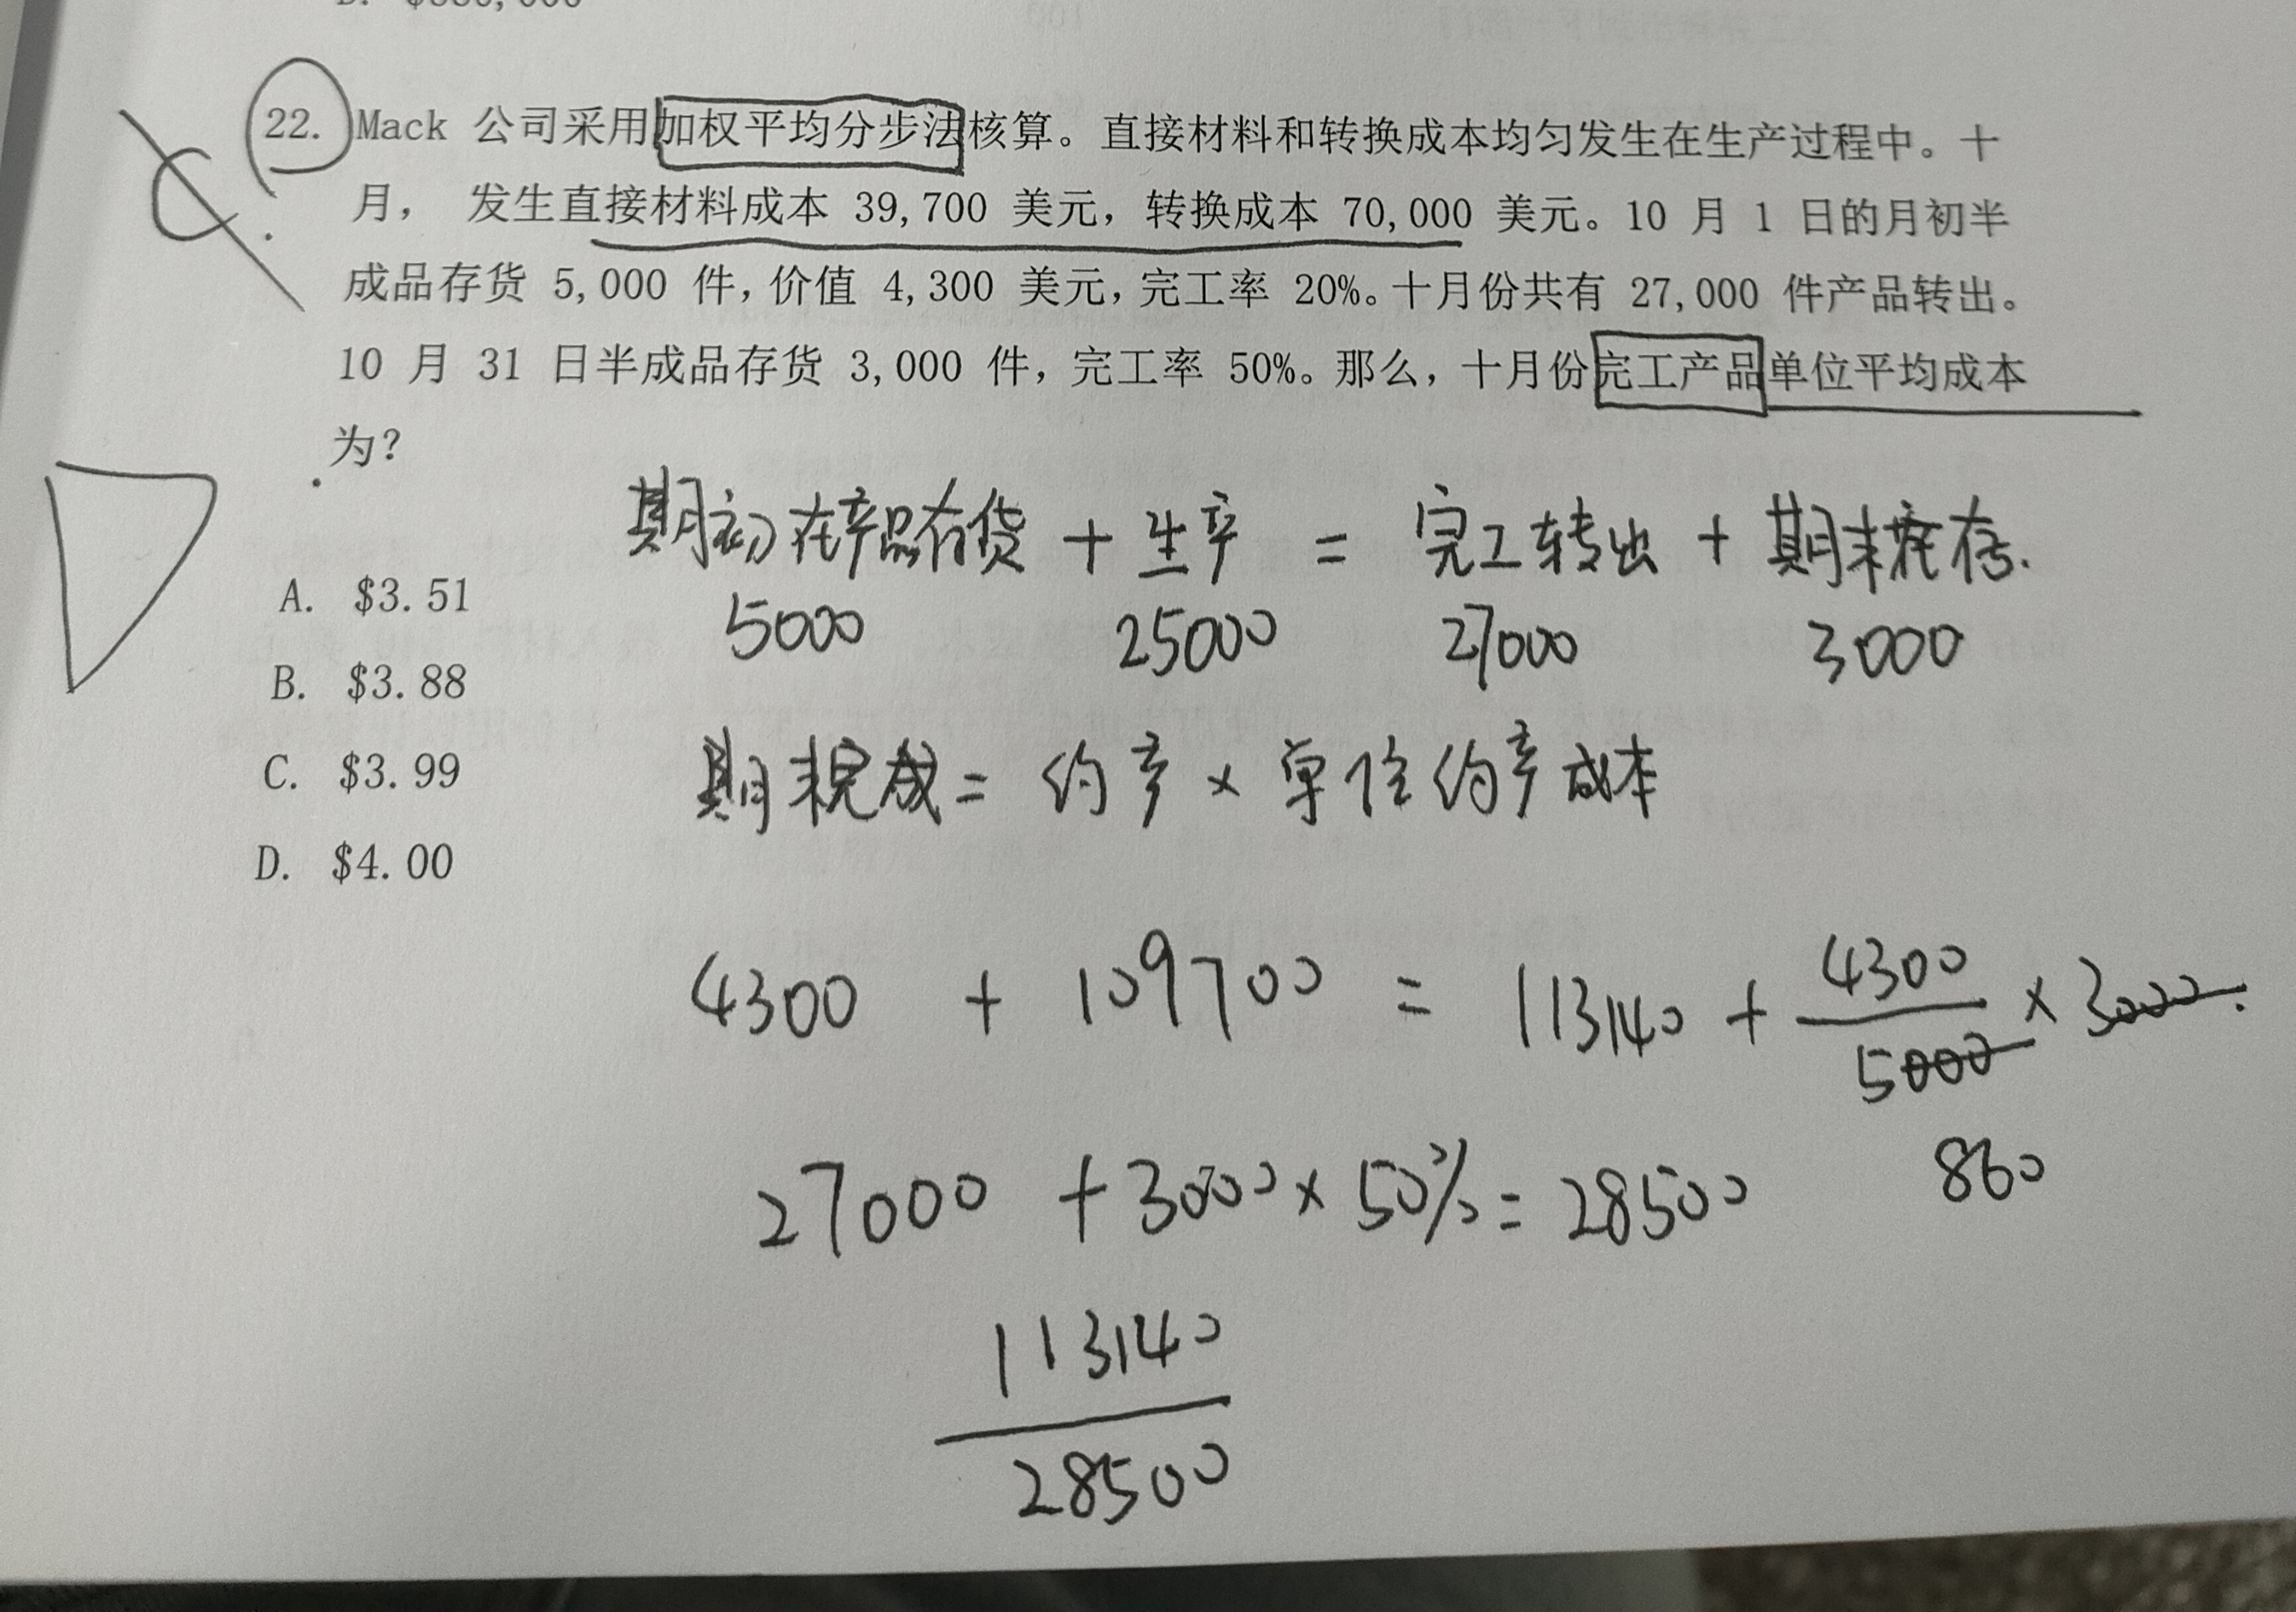 22. Mack 公司采用加权平均分步法核算。直接材料和转换成本均匀发生在生产过程中。十
C.
月， 发生直接材料成本 39,700 美元，转换成本 70,000 美元。10 月 1 日的月初半
成品存货 5,000 件，价值 4,300 美元，完工率 20%。十月份共有 27,000 件产品转出。
10 月 31 日半成品存货 3,000 件，完工率 50%。那么，十月份完工产品单位平均成本
为？
期初在产品存货 + 生产 = 完工转出 + 期末存.
5000 25000 27000 3000
A. $3.51
B. $3.88
C. $3.99
D. $4.00
期末完成 = 约产 × 单位约产成本
4300 + 109700 = 113140 + 4300/5000 × 3000.
27000 + 3000 × 50% = 28500
860
113140
28500